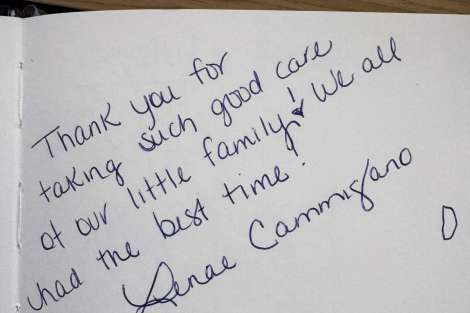 Thank you for
taking such good care
of our little family! We all
had the best time!
Renae Cammisano